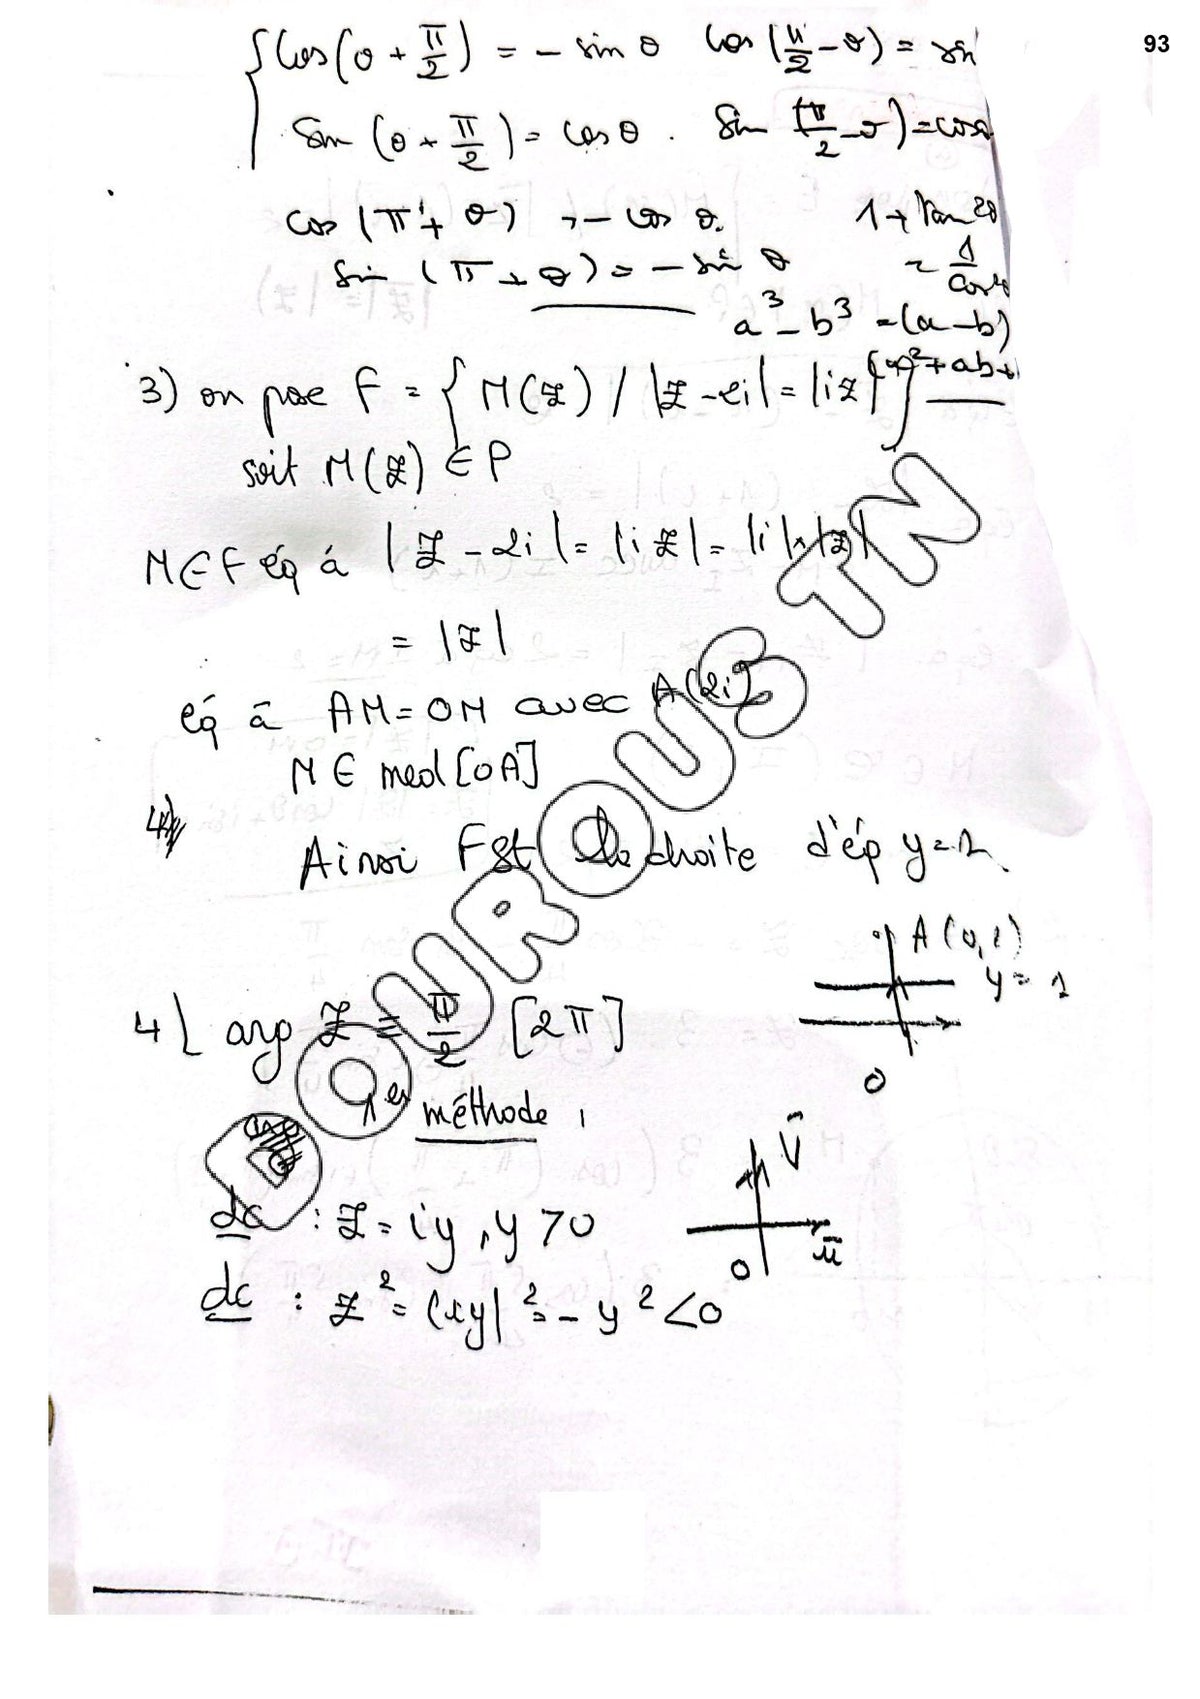 93
cos(θ + π/2) = - sin θ cos(π/2 - θ) = sin
sin (θ + π/2) = cos θ . sin (π/2 - θ) = cos
cos (π + θ) = - cos θ. 1 + tan²θ
sin (π + θ) = - sin θ = 1/cos²θ
a³ - b³ = (a-b)
(a² + ab +
3) on pose F = { M(z) / |z - 2i| = |iz| }
soit M(z) ∈ P
M ∈ F éq à |z - 2i| = |iz| = |i| × |z|
= |z|
éq à AM = OM avec A(2i)
M ∈ med [OA]
4)
Ainsi F est la droite d'éq y = 1
A(0,2)
y = 1
O
4) arg z ≡ π/2 [2π]
1er méthode :
dc : z = iy , y > 0
V
O u
dc : z² = (iy)² = - y² < 0
DOUROUS TN